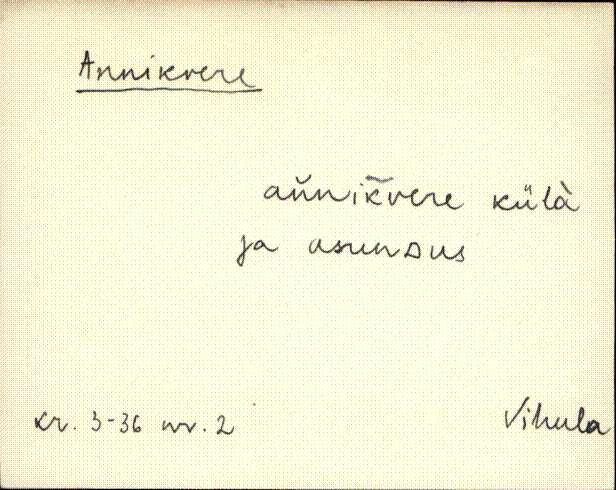 Annikvere
an̆nik̆vere külà
ja asunᴅus
kr. 3-36 nr. 2
Vihula